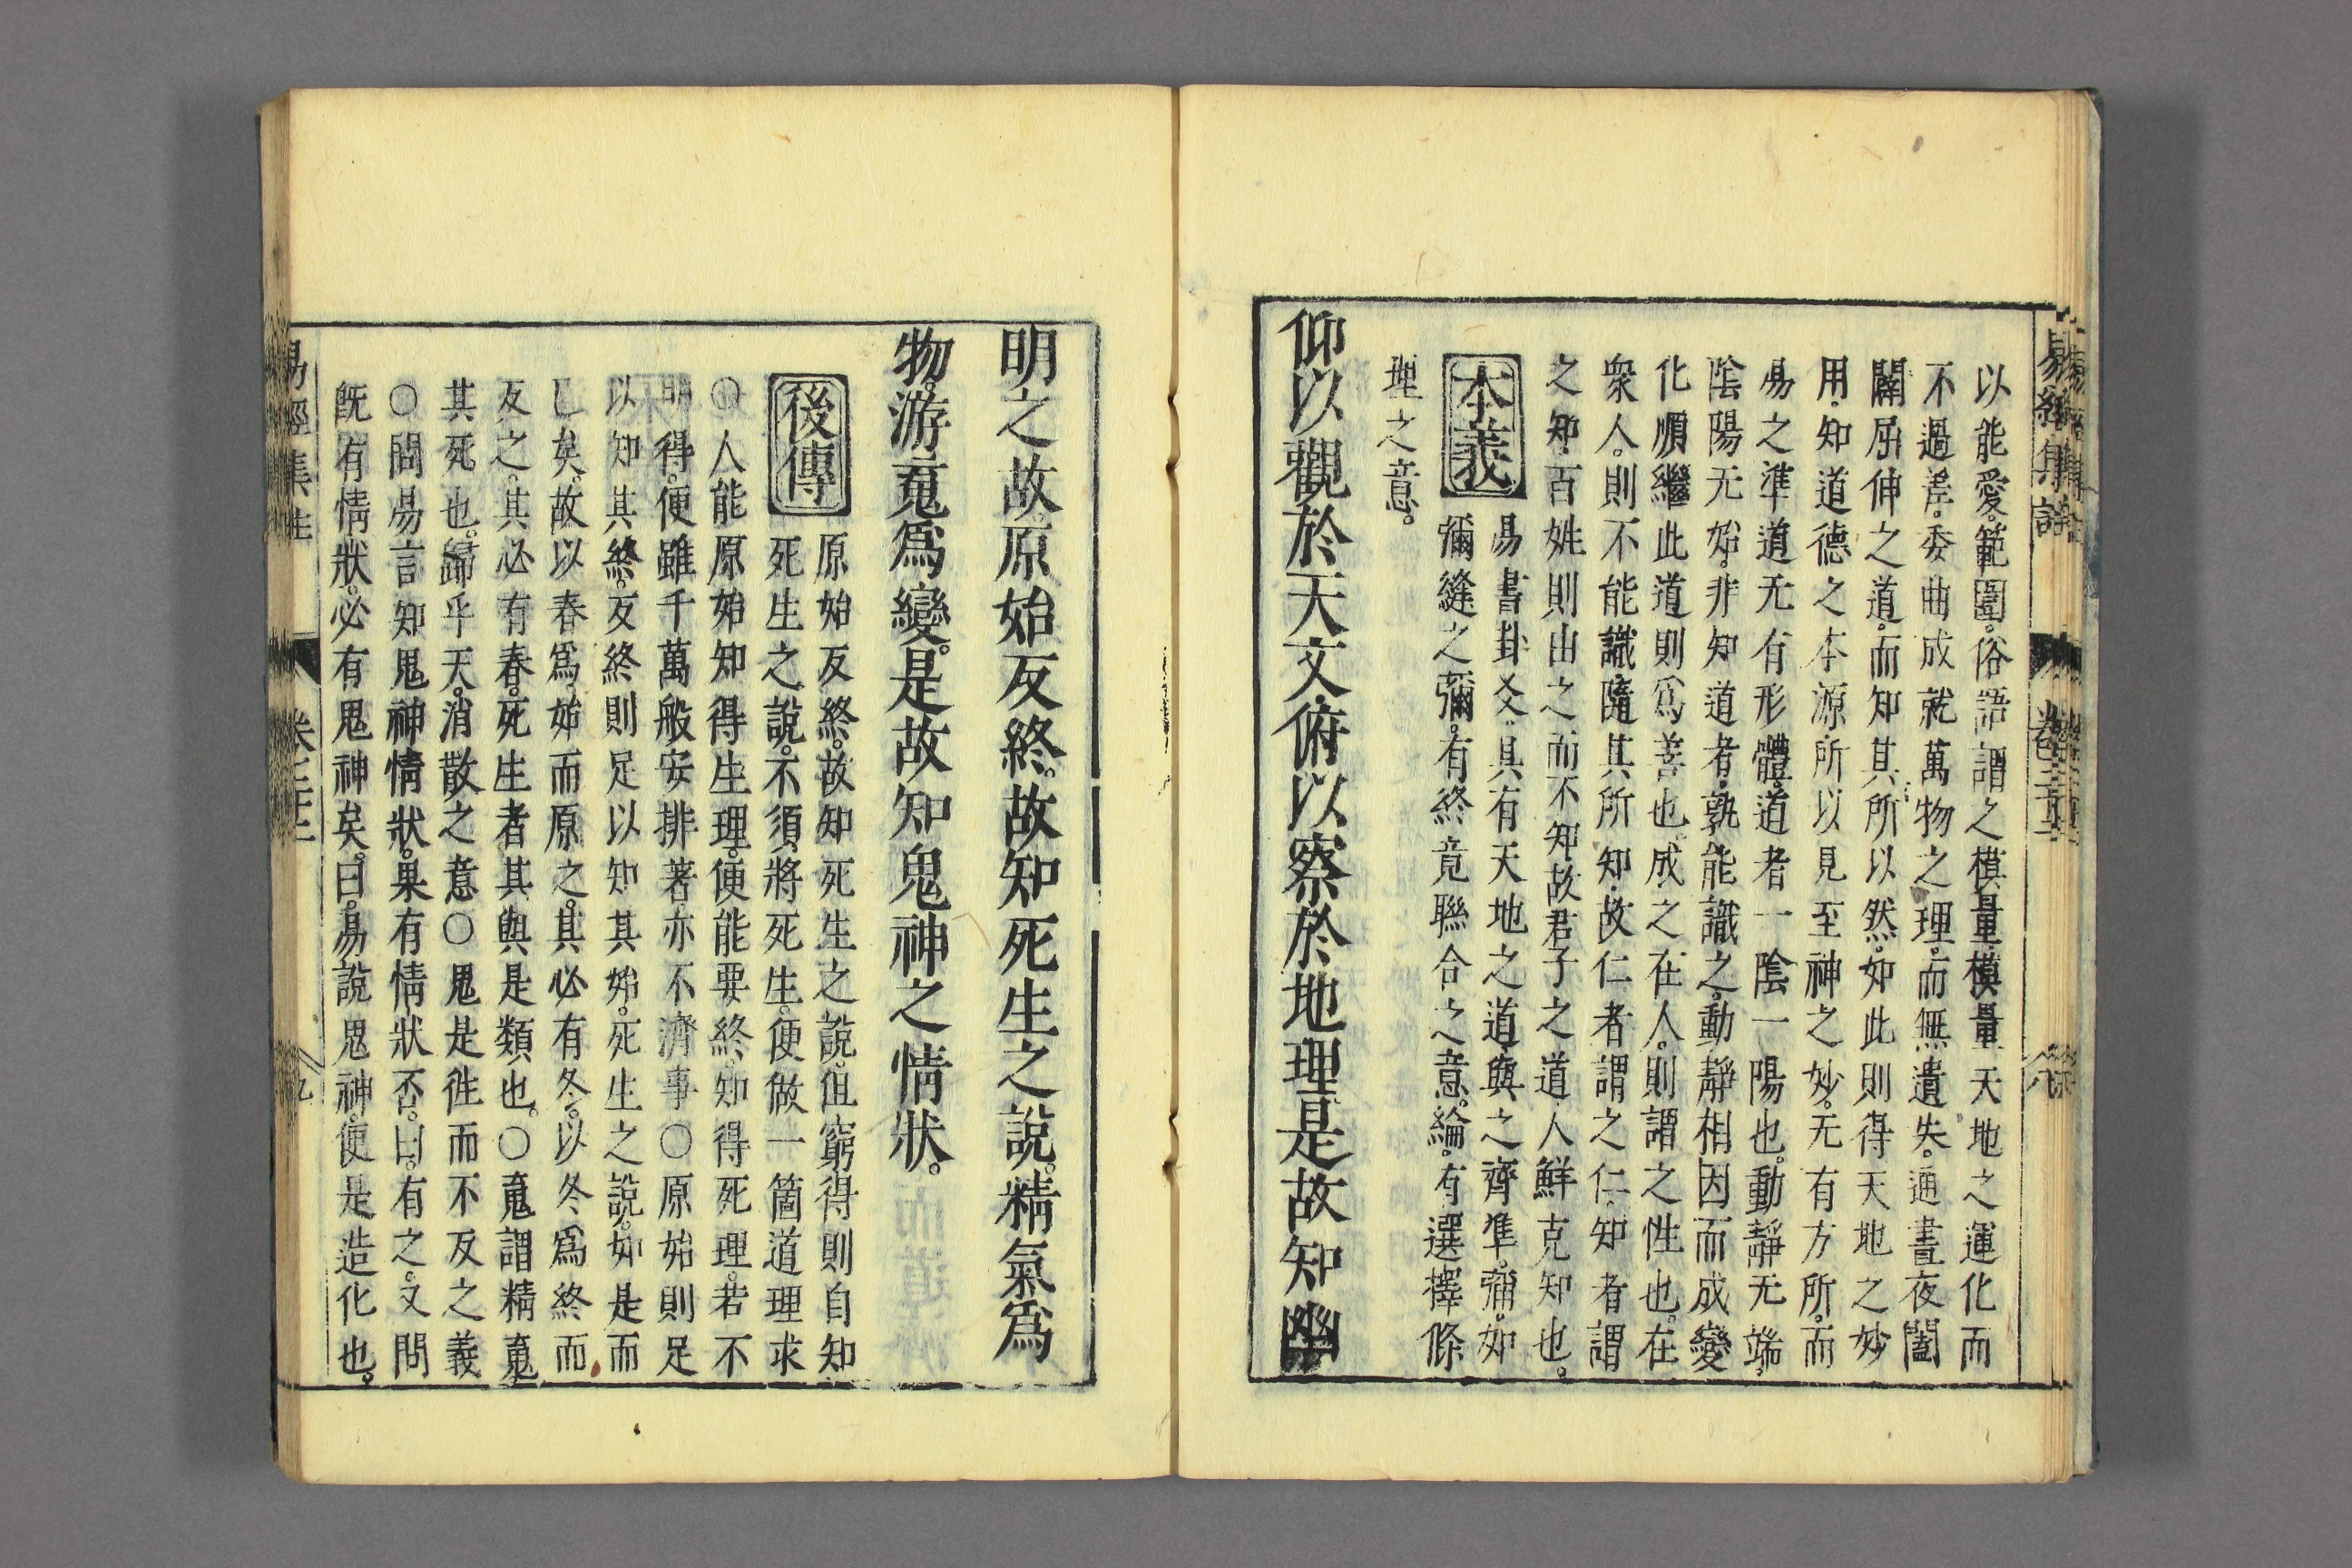 易經集註
卷二十三
八
以能愛範圍俗語謂之模量模量天地之運化而
不過差委曲成就萬物之理而無遺失通晝夜闔
闢屈伸之道而知其所以然如此則得天地之妙
用知道德之本源所以見至神之妙无有方所而
易之準道无有形體道者一陰一陽也動靜无端
陰陽无始非知道者孰能識之動靜相因而成變
化順繼此道則爲善也成之在人則謂之性也在
衆人則不能識隨其所知故仁者謂之仁知者謂
之知百姓則由之而不知故君子之道人鮮克知也
本義
易書卦爻具有天地之道與之齊準彌如
彌縫之彌有終竟聯合之意綸有選擇條
理之意
仰以觀於天文俯以察於地理是故知幽
明之故原始反終故知死生之說精氣爲
物游䰟爲變是故知鬼神之情狀
後傳
原始反終故知死生之說但窮得則自知
死生之說不須將死生便做一箇道理求
○人能原始知得生理便能要終知得死理若不
明得便雖千萬般安排著亦不濟事○原始則足
以知其終反終則足以知其始死生之說如是而
已矣故以春爲始而原之其必有冬以冬爲終而
反之其必有春死生者其與是類也○䰟謂精䰟
其死也歸乎天消散之意○鬼是徃而不反之義
○問易言知鬼神情狀果有情狀否曰有之又問
旣有情狀必有鬼神矣曰易說鬼神便是造化也
易經集註
九